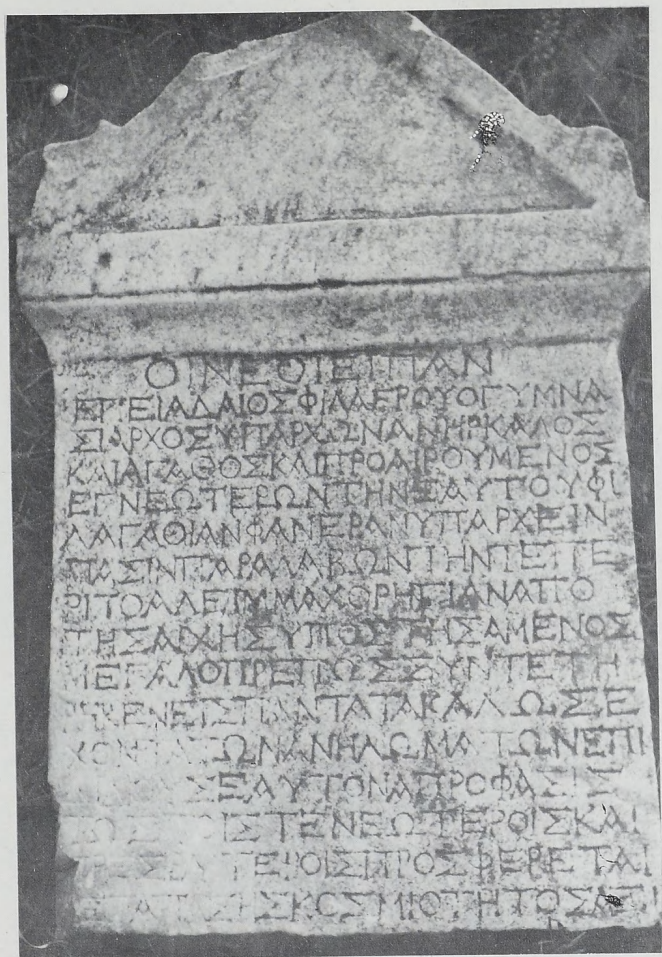 ΟΙΝΕΟΙΕΙΠΑΝ
ΕΠΕΙΑΔΑΙΟΣΦΙΛΑΕΡΟΥΟΓΥΜΝΑ
ΣΙΑΡΧΟΣΥΠΑΡΧΩΝΑΝΗΡΚΑΛΟΣ
ΚΑΙΑΓΑΘΟΣΚΑΙΠΡΟΑΙΡΟΥΜΕΝΟΣ
ΕΓΝΕΩΤΕΡΩΝΤΗΝΕΑΥΤΟΥΦΙ
ΛΑΓΑΘΙΑΝΦΑΝΕΡΑΝΥΠΑΡΧΕΙΝ
ΠΑΣΙΝΠΑΡΑΛΑΒΩΝΤΗΝΤΕΠΕ
ΡΙΤΟΑΛΕΙΜΜΑΧΟΡΗΓΙΑΝΑΠΟ
ΤΗΣΑΡΧΗΣΥΠΟΣΤΗΣΑΜΕΝΟΣ
ΜΕΓΑΛΟΠΡΕΠΩΣΣΥΝΤΕΤΗ
ΡΗΚΕΝΕΙΣΠΑΝΤΑΤΑΚΑΛΩΣΕ
ΧΟΝΤΑΤΩΝΑΝΗΛΩΜΑΤΩΝΕΠΙ
ΣΕΑΥΤΟΝΑΠΡΟΦΑΣΙΣ
ΤΩΣΤΟΙΣΤΕΝΕΩΤΕΡΟΙΣΚΑΙ
ΠΡΕΣΒΥΤΕΡΟΙΣΠΡΟΣΦΕΡΕΤΑΙ
ΚΟΣΜΙΟΤΗΤΟΣΑΠ